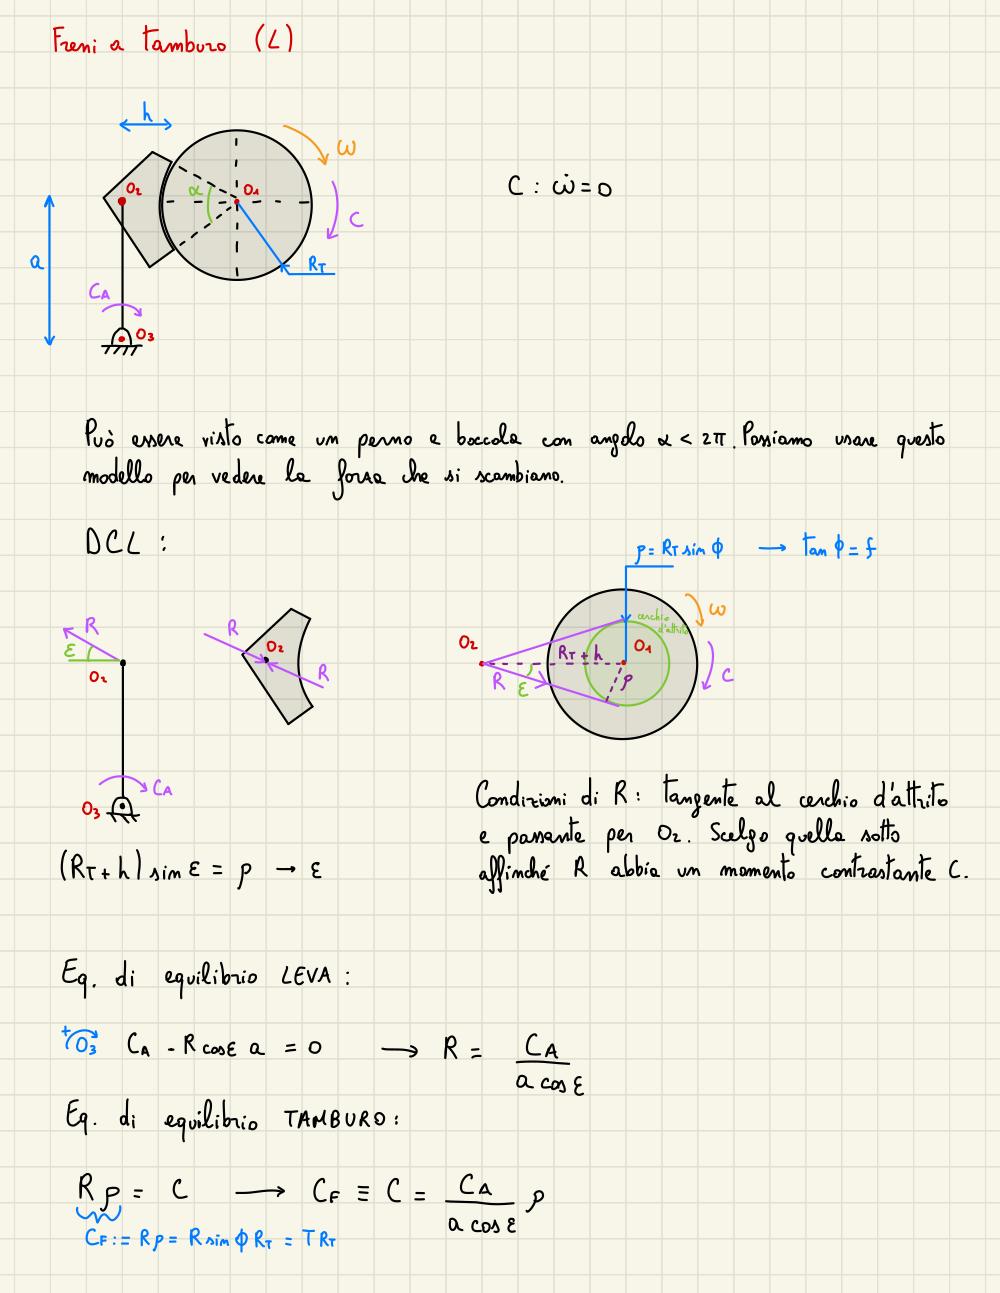 Freni a tamburo (L)
h
ω
O₂
α
O₁
C : ω̇ = 0
C
a
R_T
C_A
O₃
Può essere visto come un perno e boccola con angolo α < 2π. Possiamo usare questo
modello per vedere la forza che si scambiano.
DCL :
ρ = R_T sin ϕ → tan ϕ = f
R
ε
O₂
R
O₂
R
ω
cerchio
d'attrito
O₂
R_T + h
O₁
R
ε
ρ
C
C_A
O₃
Condizioni di R: tangente al cerchio d'attrito
e passante per O₂. Scelgo quella sotto
affinché R abbia un momento contrastante C.
(R_T + h) sin ε = ρ → ε
Eq. di equilibrio LEVA :
+ O₃ C_A - R cos ε a = 0 → R = C_A / (a cos ε)
Eq. di equilibrio TAMBURO :
Rρ = C → C_F ≡ C = C_A / (a cos ε) ρ
C_F := Rρ = R sin ϕ R_T = T R_T